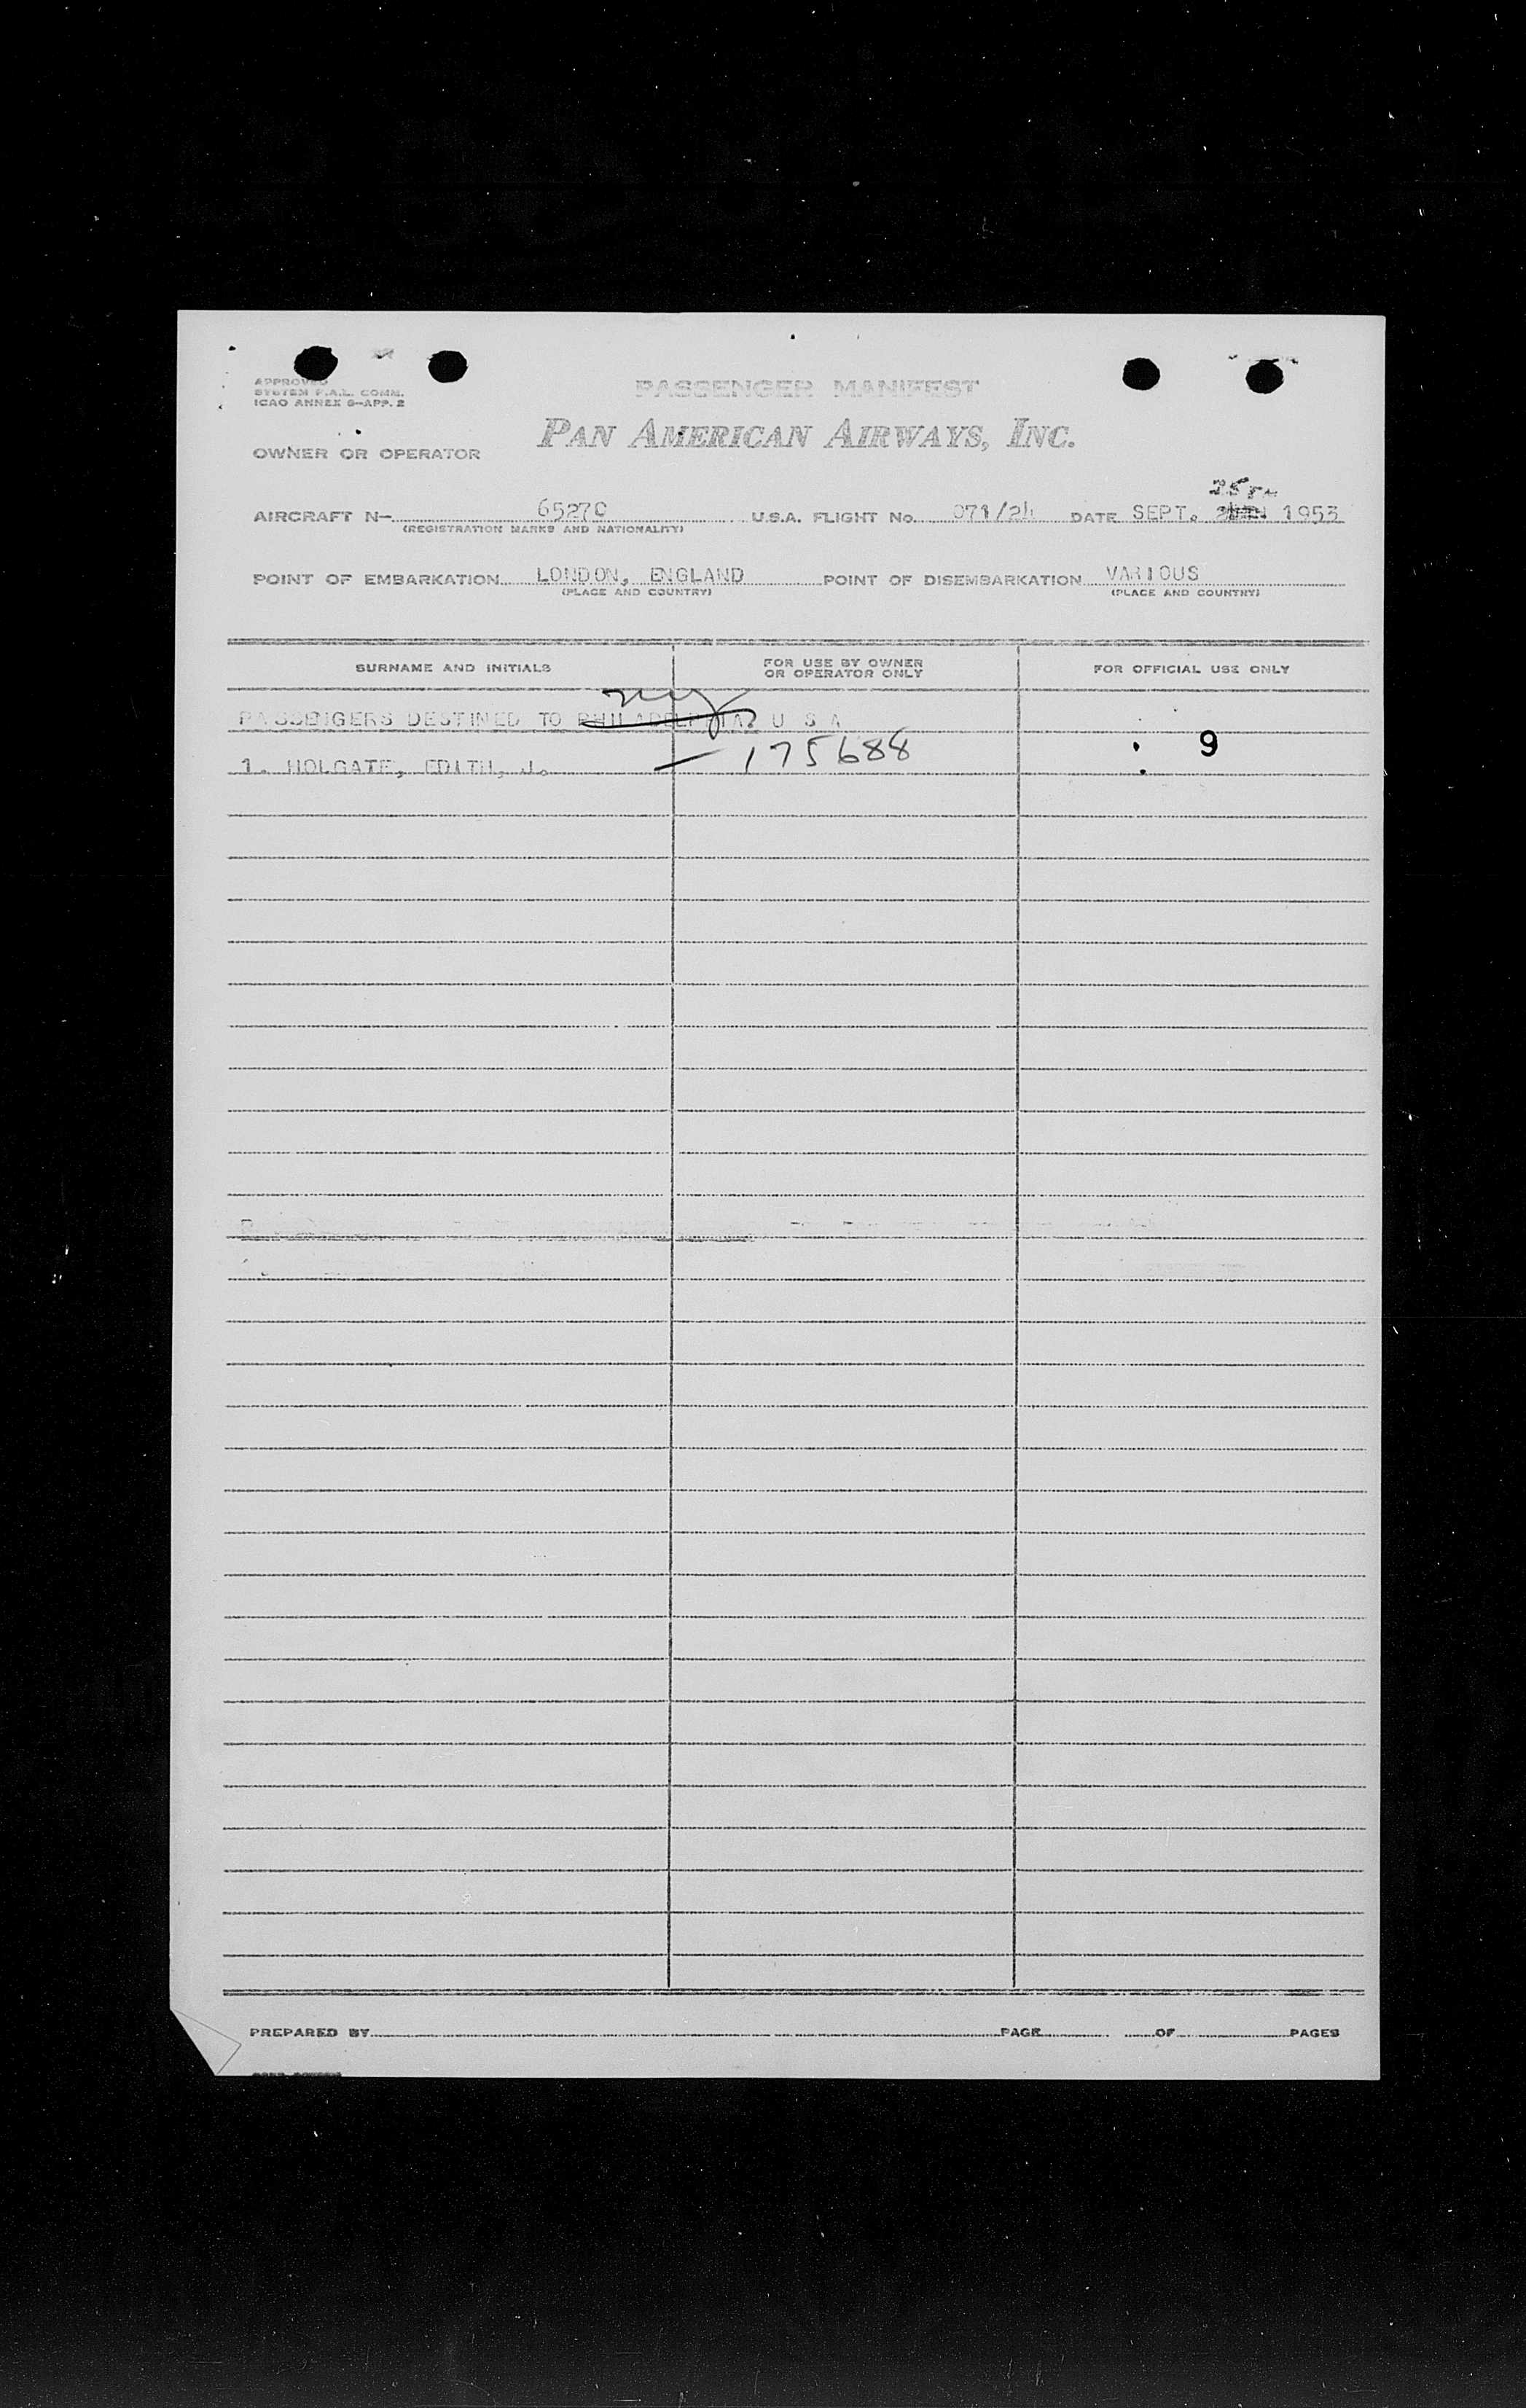 APPROVED
SYSTEM F.A.L. COMM.
ICAO ANNEX 9-APP. 2
PASSENGER MANIFEST
PAN AMERICAN AIRWAYS, INC.
OWNER OR OPERATOR
25TH
AIRCRAFT N- 65270 U.S.A. FLIGHT No. 071/24 DATE SEPT. 1953
(REGISTRATION MARKS AND NATIONALITY)
POINT OF EMBARKATION LONDON, ENGLAND POINT OF DISEMBARKATION VARIOUS
(PLACE AND COUNTRY) (PLACE AND COUNTRY)
SURNAME AND INITIALS FOR USE BY OWNER OR OPERATOR ONLY FOR OFFICIAL USE ONLY
ny
PASSENGERS DESTINED TO PHILADELPHIA, U S A
1. HOLGATE, EDITH, J. — 175688 9
PREPARED BY PAGE OF PAGES